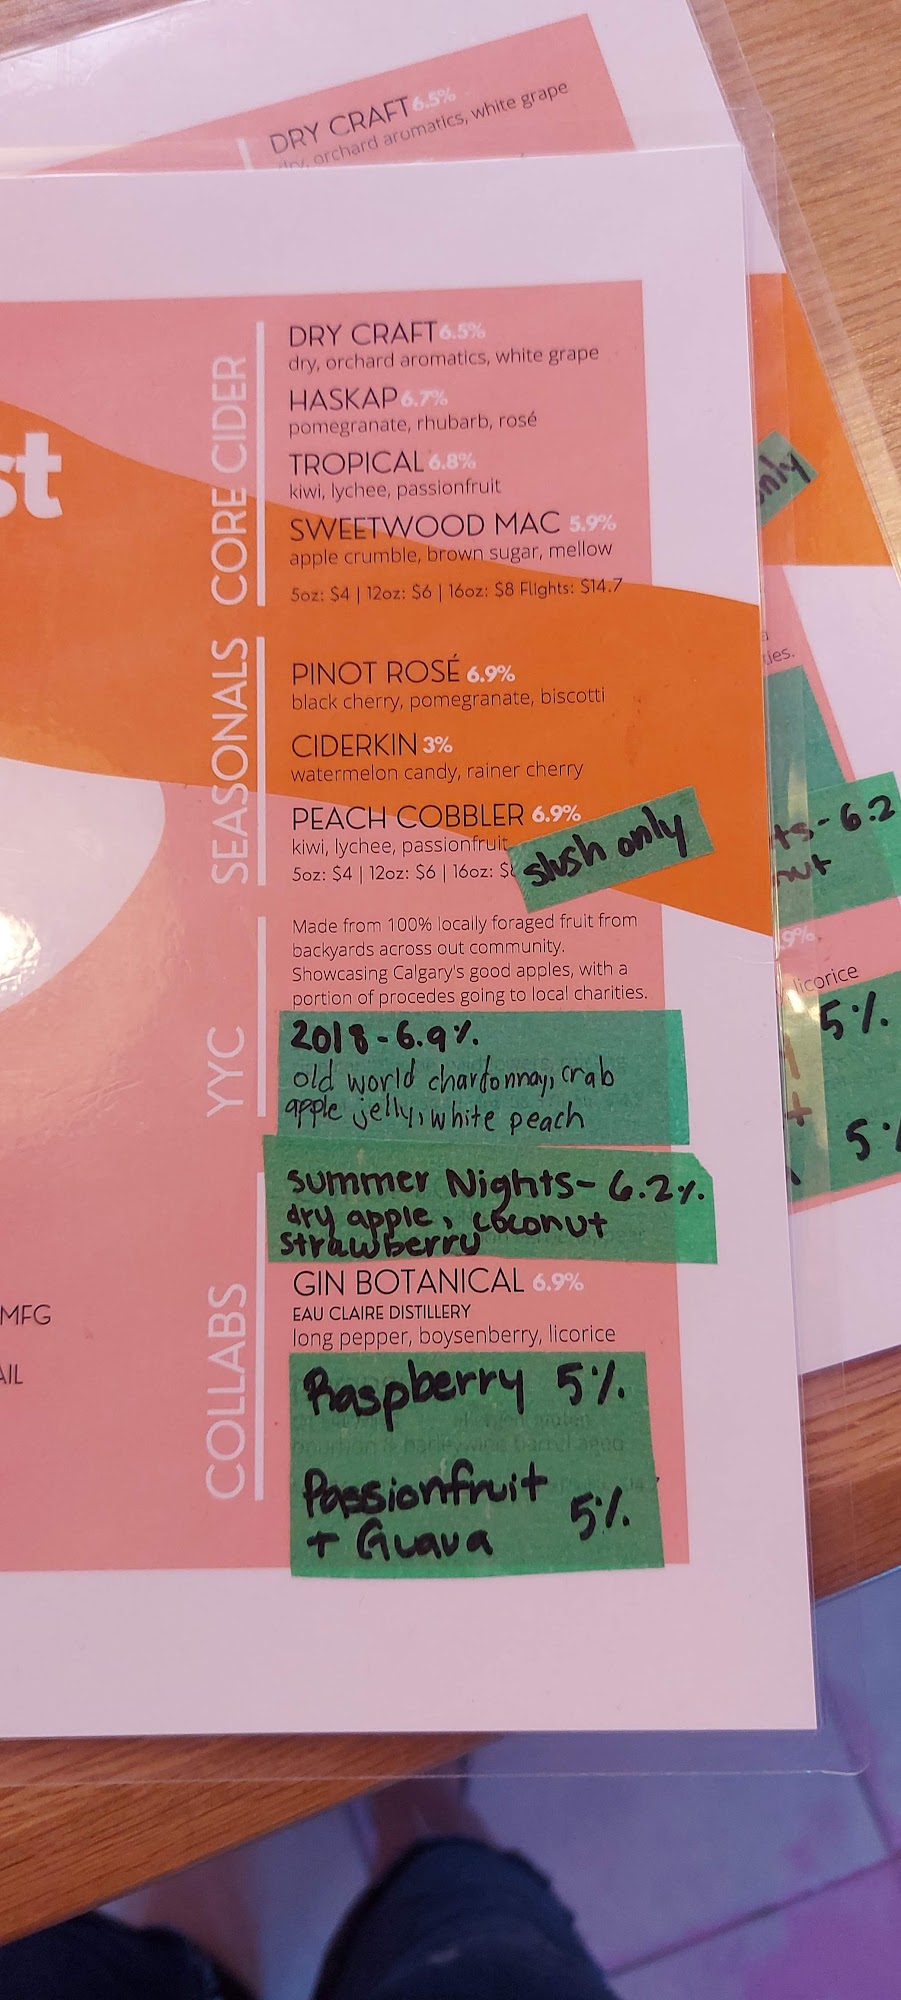 DRY CRAFT 6.5%
dry, orchard aromatics, white grape
st
CORE CIDER
DRY CRAFT 6.5%
dry, orchard aromatics, white grape
HASKAP 6.7%
pomegranate, rhubarb, rosé
TROPICAL 6.8%
kiwi, lychee, passionfruit
SWEETWOOD MAC 5.9%
apple crumble, brown sugar, mellow
5oz: $4 | 12oz: $6 | 16oz: $8 Flights: $14.7
SEASONALS
PINOT ROSÉ 6.9%
black cherry, pomegranate, biscotti
CIDERKIN 3%
watermelon candy, rainer cherry
PEACH COBBLER 6.9%
kiwi, lychee, passionfruit
5oz: $4 | 12oz: $6 | 16oz:
slush only
YYC
Made from 100% locally foraged fruit from
backyards across out community.
Showcasing Calgary's good apples, with a
portion of procedes going to local charities.
2018-6.9%
old world chardonnay, crab
apple jelly, white peach
COLLABS
Summer Nights- 6.2%
dry apple, coconut
strawberry
GIN BOTANICAL 6.9%
EAU CLAIRE DISTILLERY
long pepper, boysenberry, licorice
Raspberry 5%
Passionfruit
+ Guava 5%
MFG
AIL
nly
ies.
ts-6.2
nut
9%
licorice
5%
+
5%